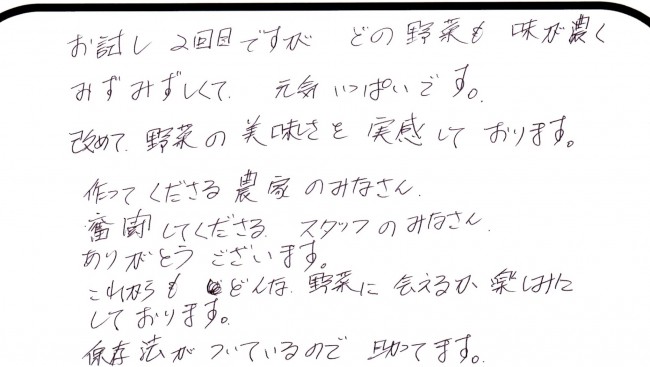 お試し 2回目ですが どの野菜も 味が濃く
みずみずしくて、元気いっぱいです。
改めて、野菜の美味しさを 実感して おります。
作ってくださる 農家 のみなさん、
奮闘してくださる スタッフのみなさん、
ありがとう ございます。
これからも どんな 野菜に 会えるか 楽しみに
しております。
保存法が ついているので 助かてます。